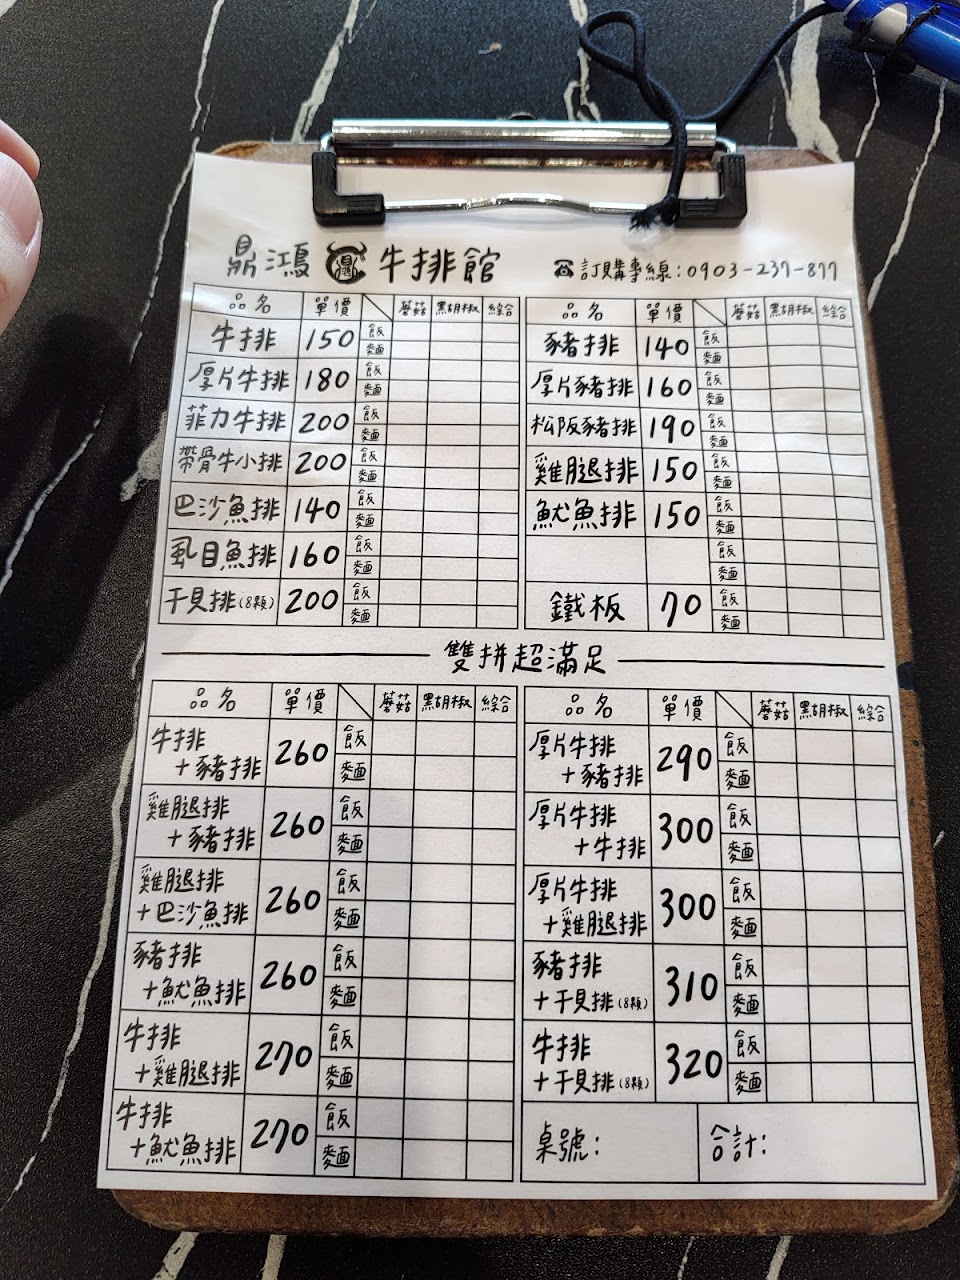 鼎鴻 牛排館 ☎訂購專線:0903-237-877
品名 單價 蘑菇 黑胡椒 綜合
牛排 150 飯 麵
厚片牛排 180 飯 麵
菲力牛排 200 飯 麵
帶骨牛小排 200 飯 麵
巴沙魚排 140 飯 麵
虱目魚排 160 飯 麵
干貝排(8顆) 200 飯 麵
品名 單價 蘑菇 黑胡椒 綜合
豬排 140 飯 麵
厚片豬排 160 飯 麵
松阪豬排 190 飯 麵
雞腿排 150 飯 麵
魷魚排 150 飯 麵
飯 麵
鐵板 70 飯 麵
雙拼超滿足
品名 單價 蘑菇 黑胡椒 綜合
牛排
+豬排 260 飯 麵
雞腿排
+豬排 260 飯 麵
雞腿排
+巴沙魚排 260 飯 麵
豬排
+魷魚排 260 飯 麵
牛排
+雞腿排 270 飯 麵
牛排
+魷魚排 270 飯 麵
品名 單價 蘑菇 黑胡椒 綜合
厚片牛排
+豬排 290 飯 麵
厚片牛排
+牛排 300 飯 麵
厚片牛排
+雞腿排 300 飯 麵
豬排
+干貝排(8顆) 310 飯 麵
牛排
+干貝排(8顆) 320 飯 麵
桌號: 合計: